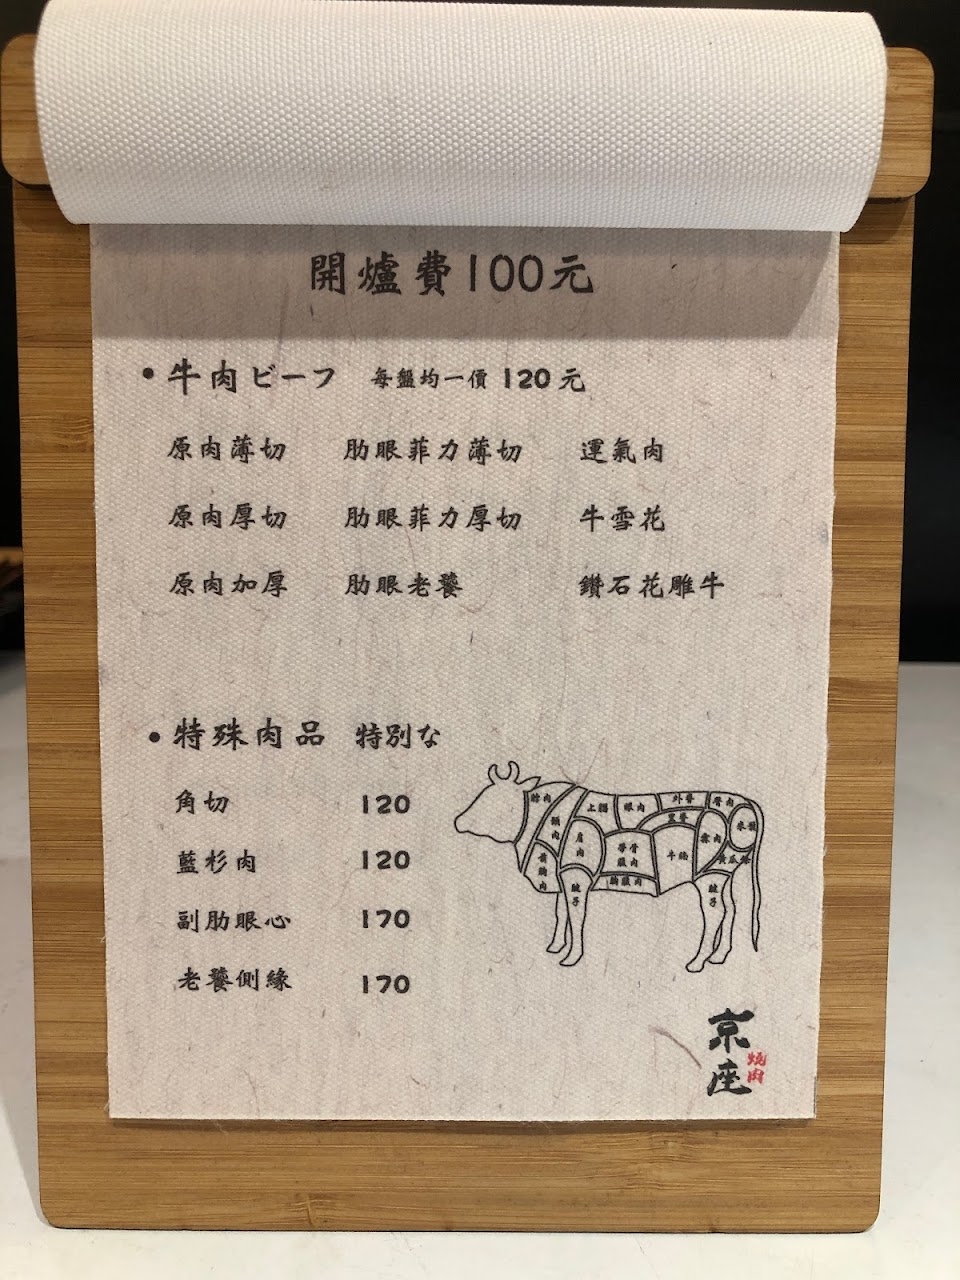 開爐費100元
•牛肉ビーフ 每盤均一價 120元
原肉薄切 肋眼菲力薄切 運氣肉
原肉厚切 肋眼菲力厚切 牛雪花
原肉加厚 肋眼老饕 鑽石花雕牛
•特殊肉品 特別な
角切 120
藍杉肉 120
副肋眼心 170
老饕側緣 170
脖肉
上腦
眼肉
外脊
臀肉
里脊
米龍
肩肉
霖肉
牛腩
黃瓜條
胸腹肉
腱子
腱子
京座
燒肉